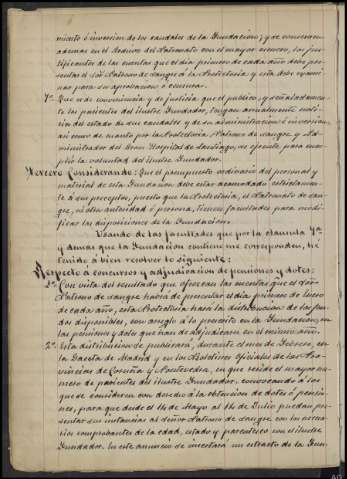 miento é inversion de los caudales de la Fundacion; y se conserven
ademas en el Archivo del Patronato con el mayor esmero, los jus-
tificantes de las cuentas que el dia primero de cada año debe pre-
sentar el Sor Patrono de sangre á la Protectoria y esta debe exami-
nar para su aprobacion ó censura.
7ª Que es de conveniencia y de justicia que el publico, y señaladamen-
te los parientes del ilustre Fundador, tengan anualmente noti-
cia del estado de sus caudales y de su administracion é inversion,
asi como de cuanto por la Protectoria, Patrono de sangre y Ad-
ministrador del Gran Hospital de Santiago, se ejecute para cum-
plir la voluntad del ilustre Fundador.
Tercero Considerando: Que el presupuesto ordinario del personal y
material de esta Fundacion debe estar acomodado estrictamen-
te á sus preceptos, puesto que la Protectoria, el Patronato de san-
gre, ni otra autoridad ó persona, tienen facultades para modi-
ficar las disposiciones de la Fundacion.
Usando de las facultades que por la clausula 7ª
y demas que la Fundacion contiene me corresponden, he
tenido á bien resolver lo siguiente:
Respecto á concursos y adjudicacion de pensiones y dotes:
1º Con vista del resultado que ofrezcan las cuentas que el Sor
Patrono de sangre habrá de presentar el dia primero de Enero
de cada año, esta Protectoria hará la distribucion de los fon-
dos disponibles, con arreglo á lo prescrito en la Fundacion, en
las pensiones y dotes que hayan de adjudicarse en el mismo año.
2º Esta distribucion se publicará, durante el mes de Febrero, en
la Gaceta de Madrid y en los Boletines Oficiales de las Pro-
vincias de Coruña y Pontevedra, en que reside el mayor nu-
mero de parientes del ilustre Fundador, convocando á los
que se consideren con derecho á la obtencion de dotes ó pensio-
nes, para que desde el 1º de Mayo al 1º de Julio puedan pre-
sentar sus instancias al Señor Patrono de sangre con los docu-
mentos comprobantes de la edad, estado y parentesco con el ilustre
Fundador. En este anuncio se insertará un extracto de la Fun-